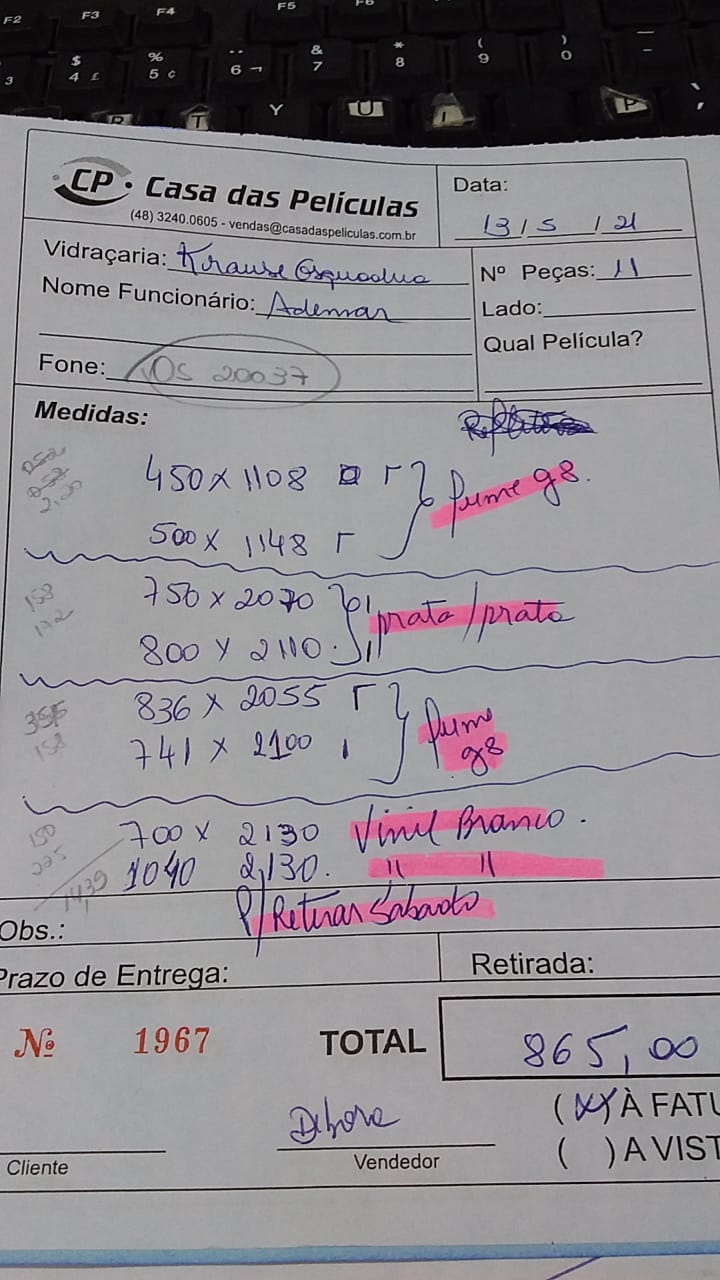 F2 F3 F4 F5 F6
3 $ 4 £ % 5 ¢ ¨ 6 ¬ & 7 * 8 ( 9 ) 0 — –
R T Y U I P ` ´
CP · Casa das Películas
(48) 3240.0605 - vendas@casadaspeliculas.com.br
Data:
13 / 5 / 21
Vidraçaria: Krause Esquadria
Nome Funcionário: Ademar
Nº Peças: 11
Lado:
Qual Película?
Fone: OS 20037
Medidas:
450 x 1108 fume g8.
500 x 1148
750 x 2070 prata/prata
800 x 2110.
836 x 2055 fume
741 x 2100 g8
700 x 2130 Vinil Branco.
1040 2,130. " "
14,39
P/ Retirar Sabado
Obs.:
Prazo de Entrega:
Retirada:
Nº 1967 TOTAL 865,00
Debora
(XX) À FATU
( ) A VIST
Cliente
Vendedor